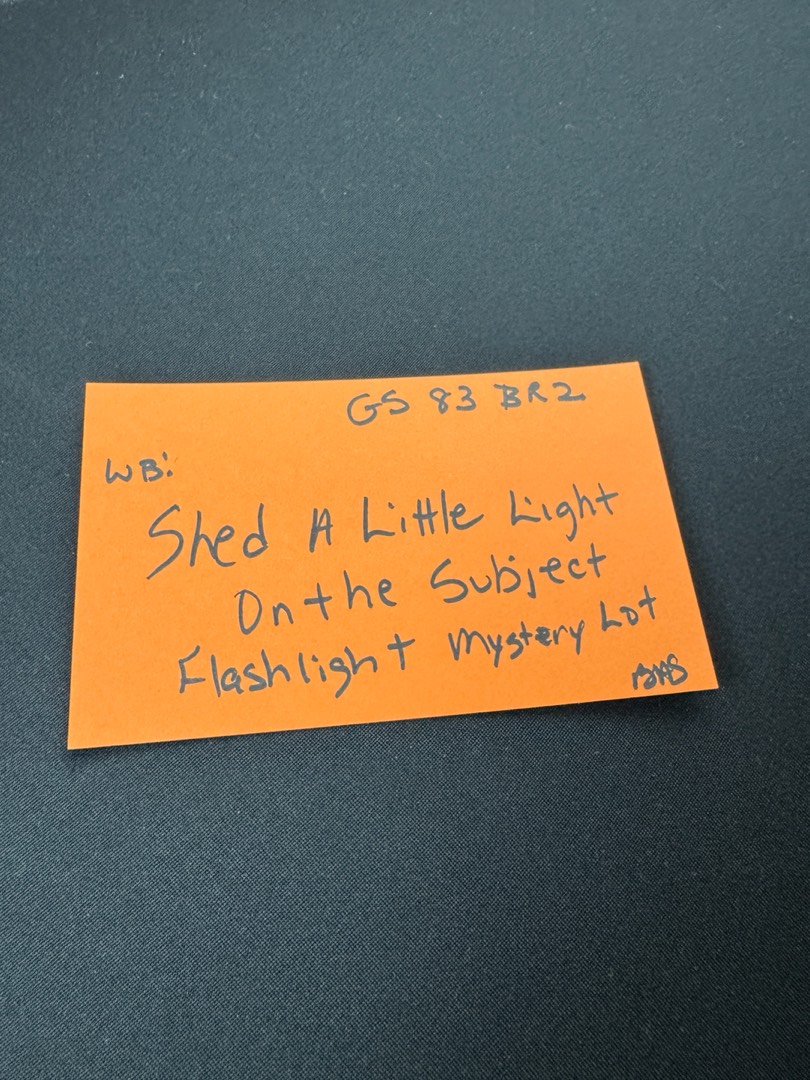 GS 83 BR2
WB:
Shed A Little Light
On the Subject
Flashlight Mystery Lot